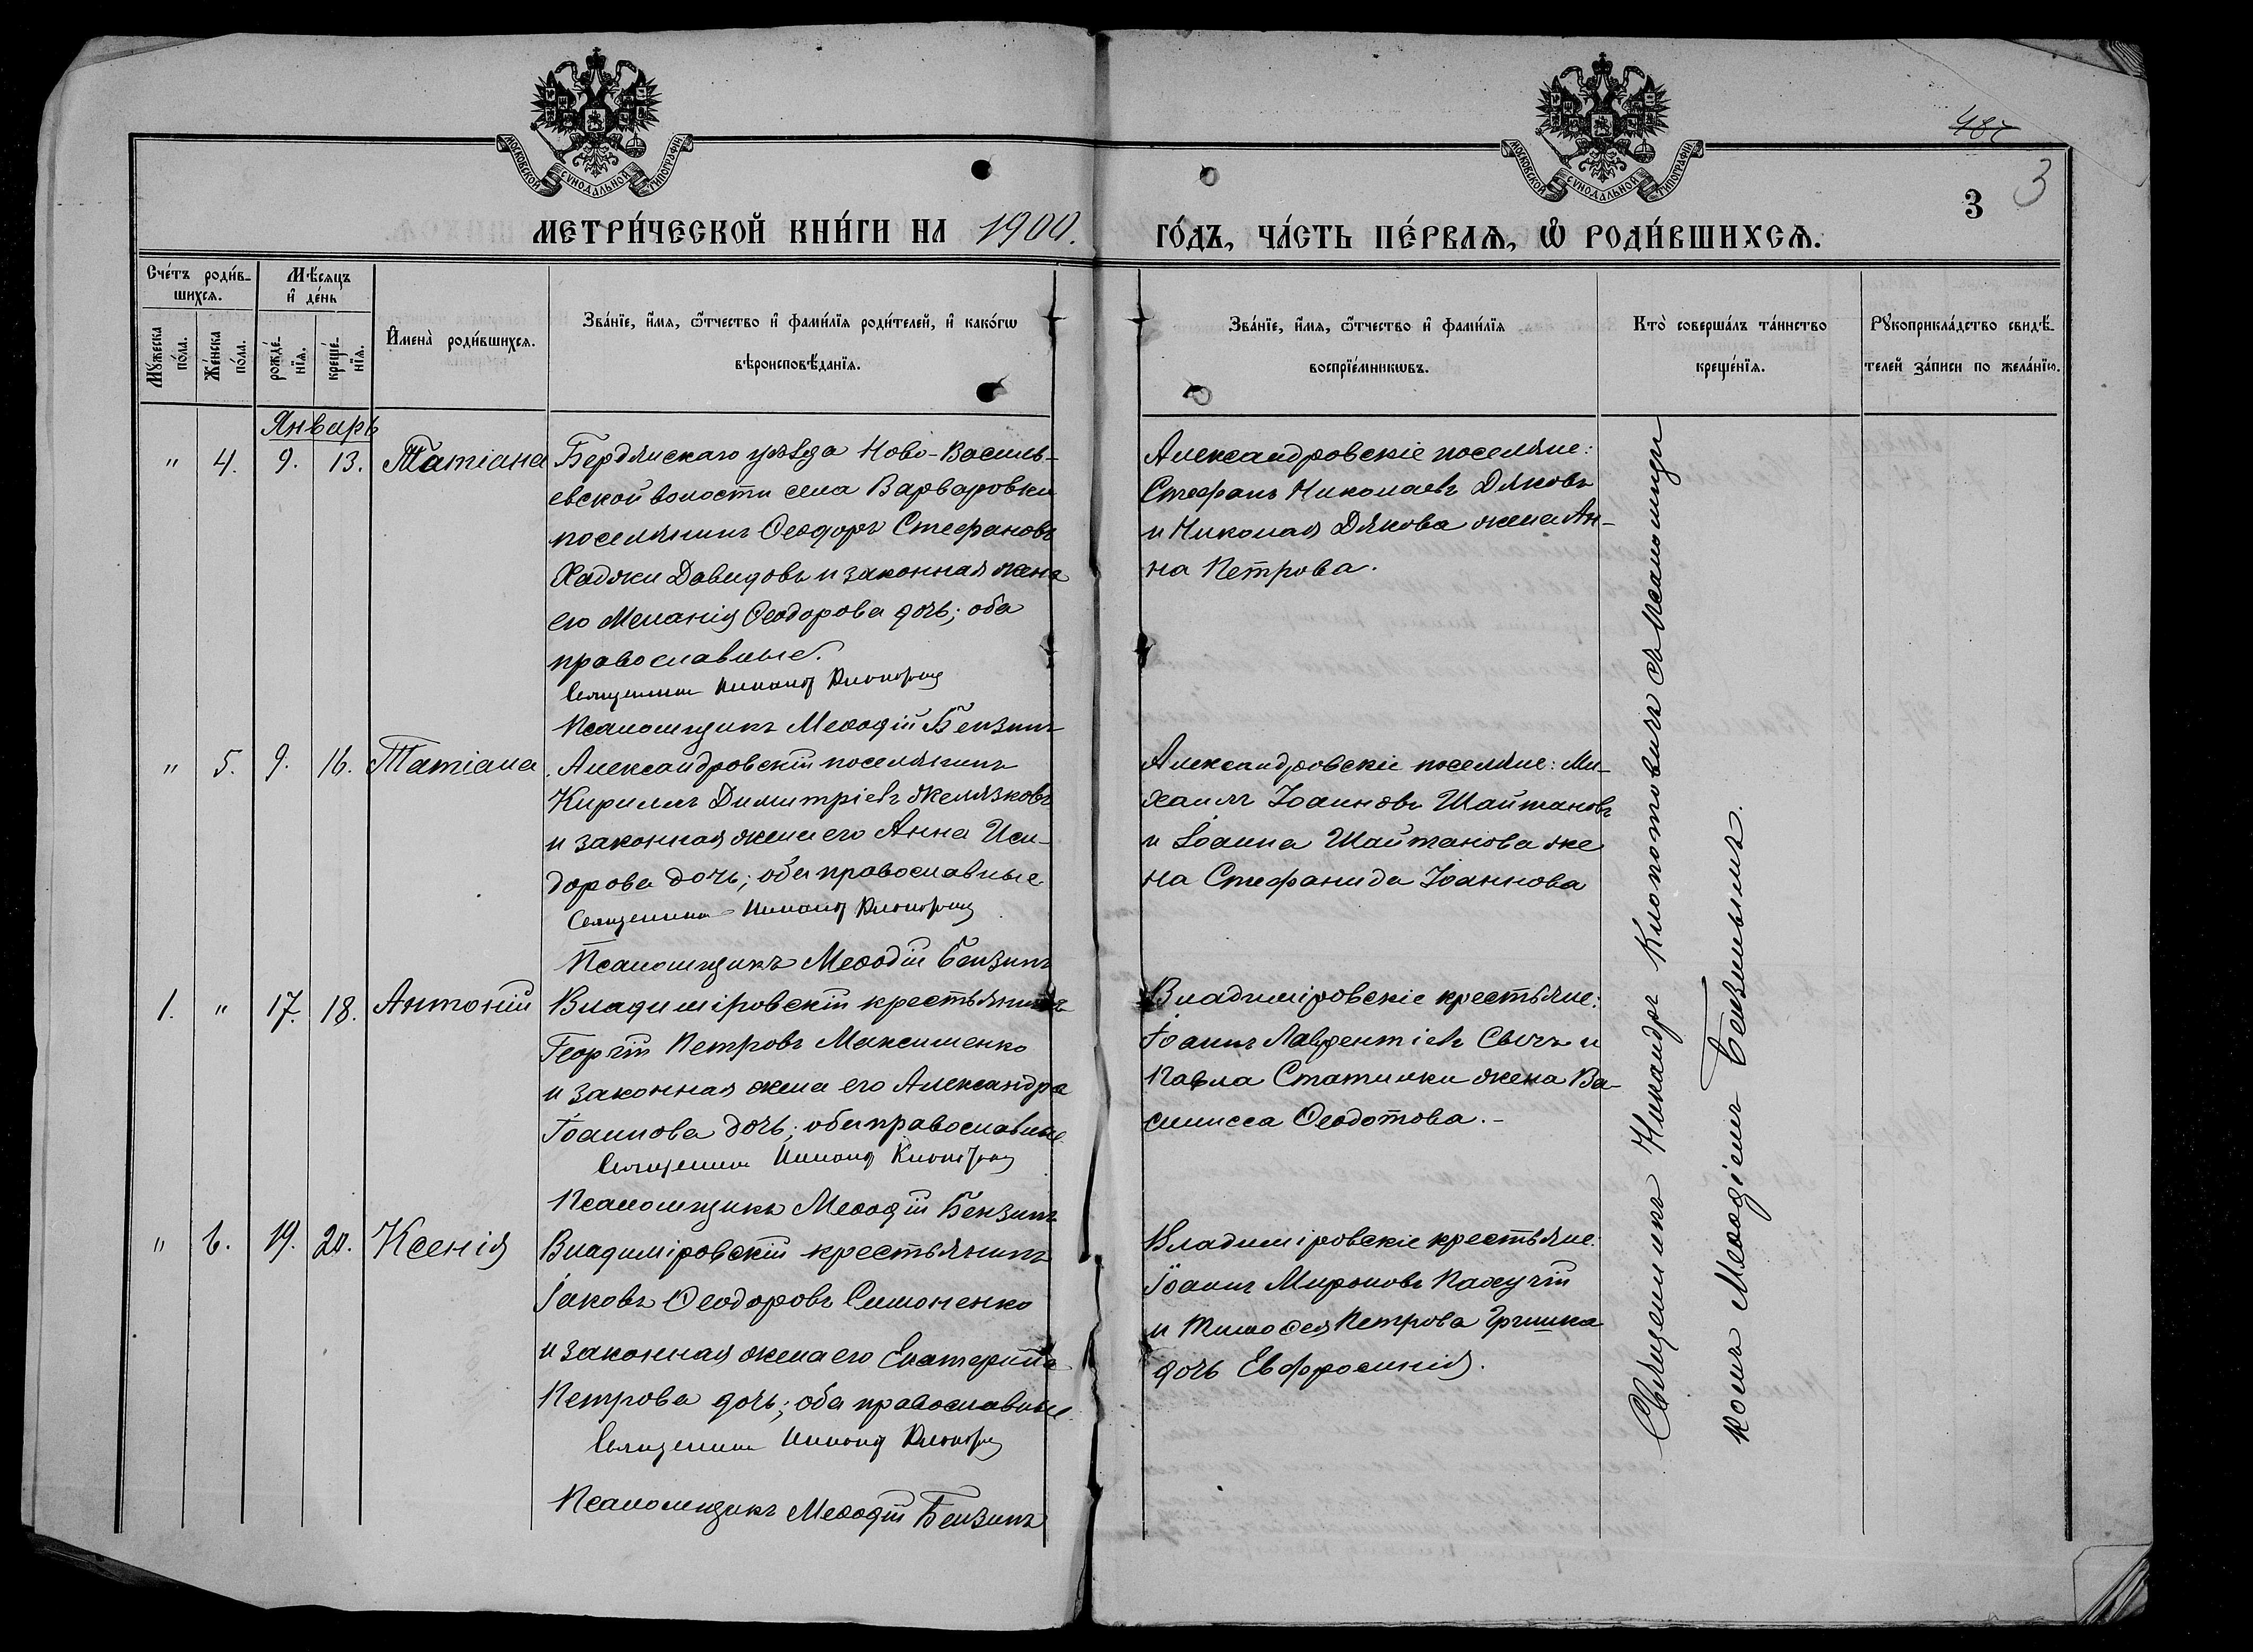 487
3
3
МОСКОВСКОЙ СѴНОДАЛЬНОЙ ТИПОГРАФІИ
МОСКОВСКОЙ СѴНОДАЛЬНОЙ ТИПОГРАФІИ
МЕТРИ́ЧЕСКОЙ КНИ́ГИ НА 1900.
ГО́ДЪ, ЧА́СТЬ ПЕ́РВАѦ, Ѡ҆ РОДИ́ВШИХСѦ.
Сче́тъ роди́в-
шихсѧ.
Мꙋ́жеска по́ла.
Же́нска по́ла.
Мѣ́сѧцъ
и҆ де́нь
рожде́-нїѧ.
креще́-нїѧ.
И҆мена̀ роди́вшихсѧ.
Зва́нїе, и҆́мѧ, ѻ҆́тчество и҆ фами́лїѧ роди́телей, и҆ како́гѡ
вѣроисповѣ́данїѧ.
Зва́нїе, и҆́мѧ, ѻ҆́тчество и҆ фами́лїѧ
воспрїе́мникѡвъ.
Кто̀ соверша́лъ та́инство
креще́нїѧ.
Рꙋкоприкла́дство свидѣ́-
телей за́писи по жела́нїю.
Январь
" 4. 9. 13. Татіана
Бердянскаго уѣзда Ново-Василь-
евской волости села Варваровки
поселянинъ Ѳеодоръ Стефановъ
Хаджи Давидовъ и законная жена
его Меланія Ѳеодорова дочь; оба
православные.
Священникъ Никандръ Клопотовичъ
Псаломщикъ Меѳодій Бензинъ
Александровскіе поселяне:
Стефанъ Николаевъ Дяковъ
и Николая Дякова жена Ан-
на Петрова.
" 5. 9. 16. Татіана
Александровскій поселянинъ
Кириллъ Димитріевъ Желязковъ
и законная жена его Анна Иси-
дорова дочь; оба православные
Священникъ Никандръ Клопотовичъ
Псаломщикъ Меѳодій Бензинъ
Александровскіе поселяне: Ми-
хаилъ Іоанновъ Шайтановъ
и Іоанна Шайтанова же
на Стефанида Іоаннова
1. " 17. 18. Антоній
Владиміровскій крестьянинъ
Георгій Петровъ Максименко
и законная жена его Александра
Іоаннова дочь; оба православные
Священникъ Никандръ Клопотовичъ
Псаломщикъ Меѳодій Бензинъ
Владиміровскіе крестьяне:
Іоаннъ Лаврентіевъ Свичъ и
Павла Статилки жена Ва-
силисса Ѳеодотова.-
" 6. 19. 20. Ксенія
Владиміровскій крестьянинъ
Іаковъ Ѳеодоровъ Симоненко
и законная жена его Екатерина
Петрова дочь; оба православные
Священникъ Никандръ Клопотовичъ
Псаломщикъ Меѳодій Бензинъ
Владиміровскіе крестьяне:
Іоаннъ Мироновъ
и Тимоѳея Петрова Гришка
дочь Евфросинія.
Священникъ Никандръ Клопотовичъ съ псаломщи
комъ Меѳодіемъ Бензинымъ.